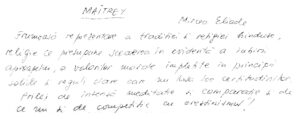 MAITREY
Mircea Eliade
Frumoasă reprezentare a tradiției și religiei hinduse,
religie ce presupune scoaterea în evidență a iubirii
aproapelui, a valorilor morale împletite în principii
solide și reguli clare care nu lasă loc
Prilej de intensă meditație și comparație și de
ce nu și de competiție cu creștinismul!